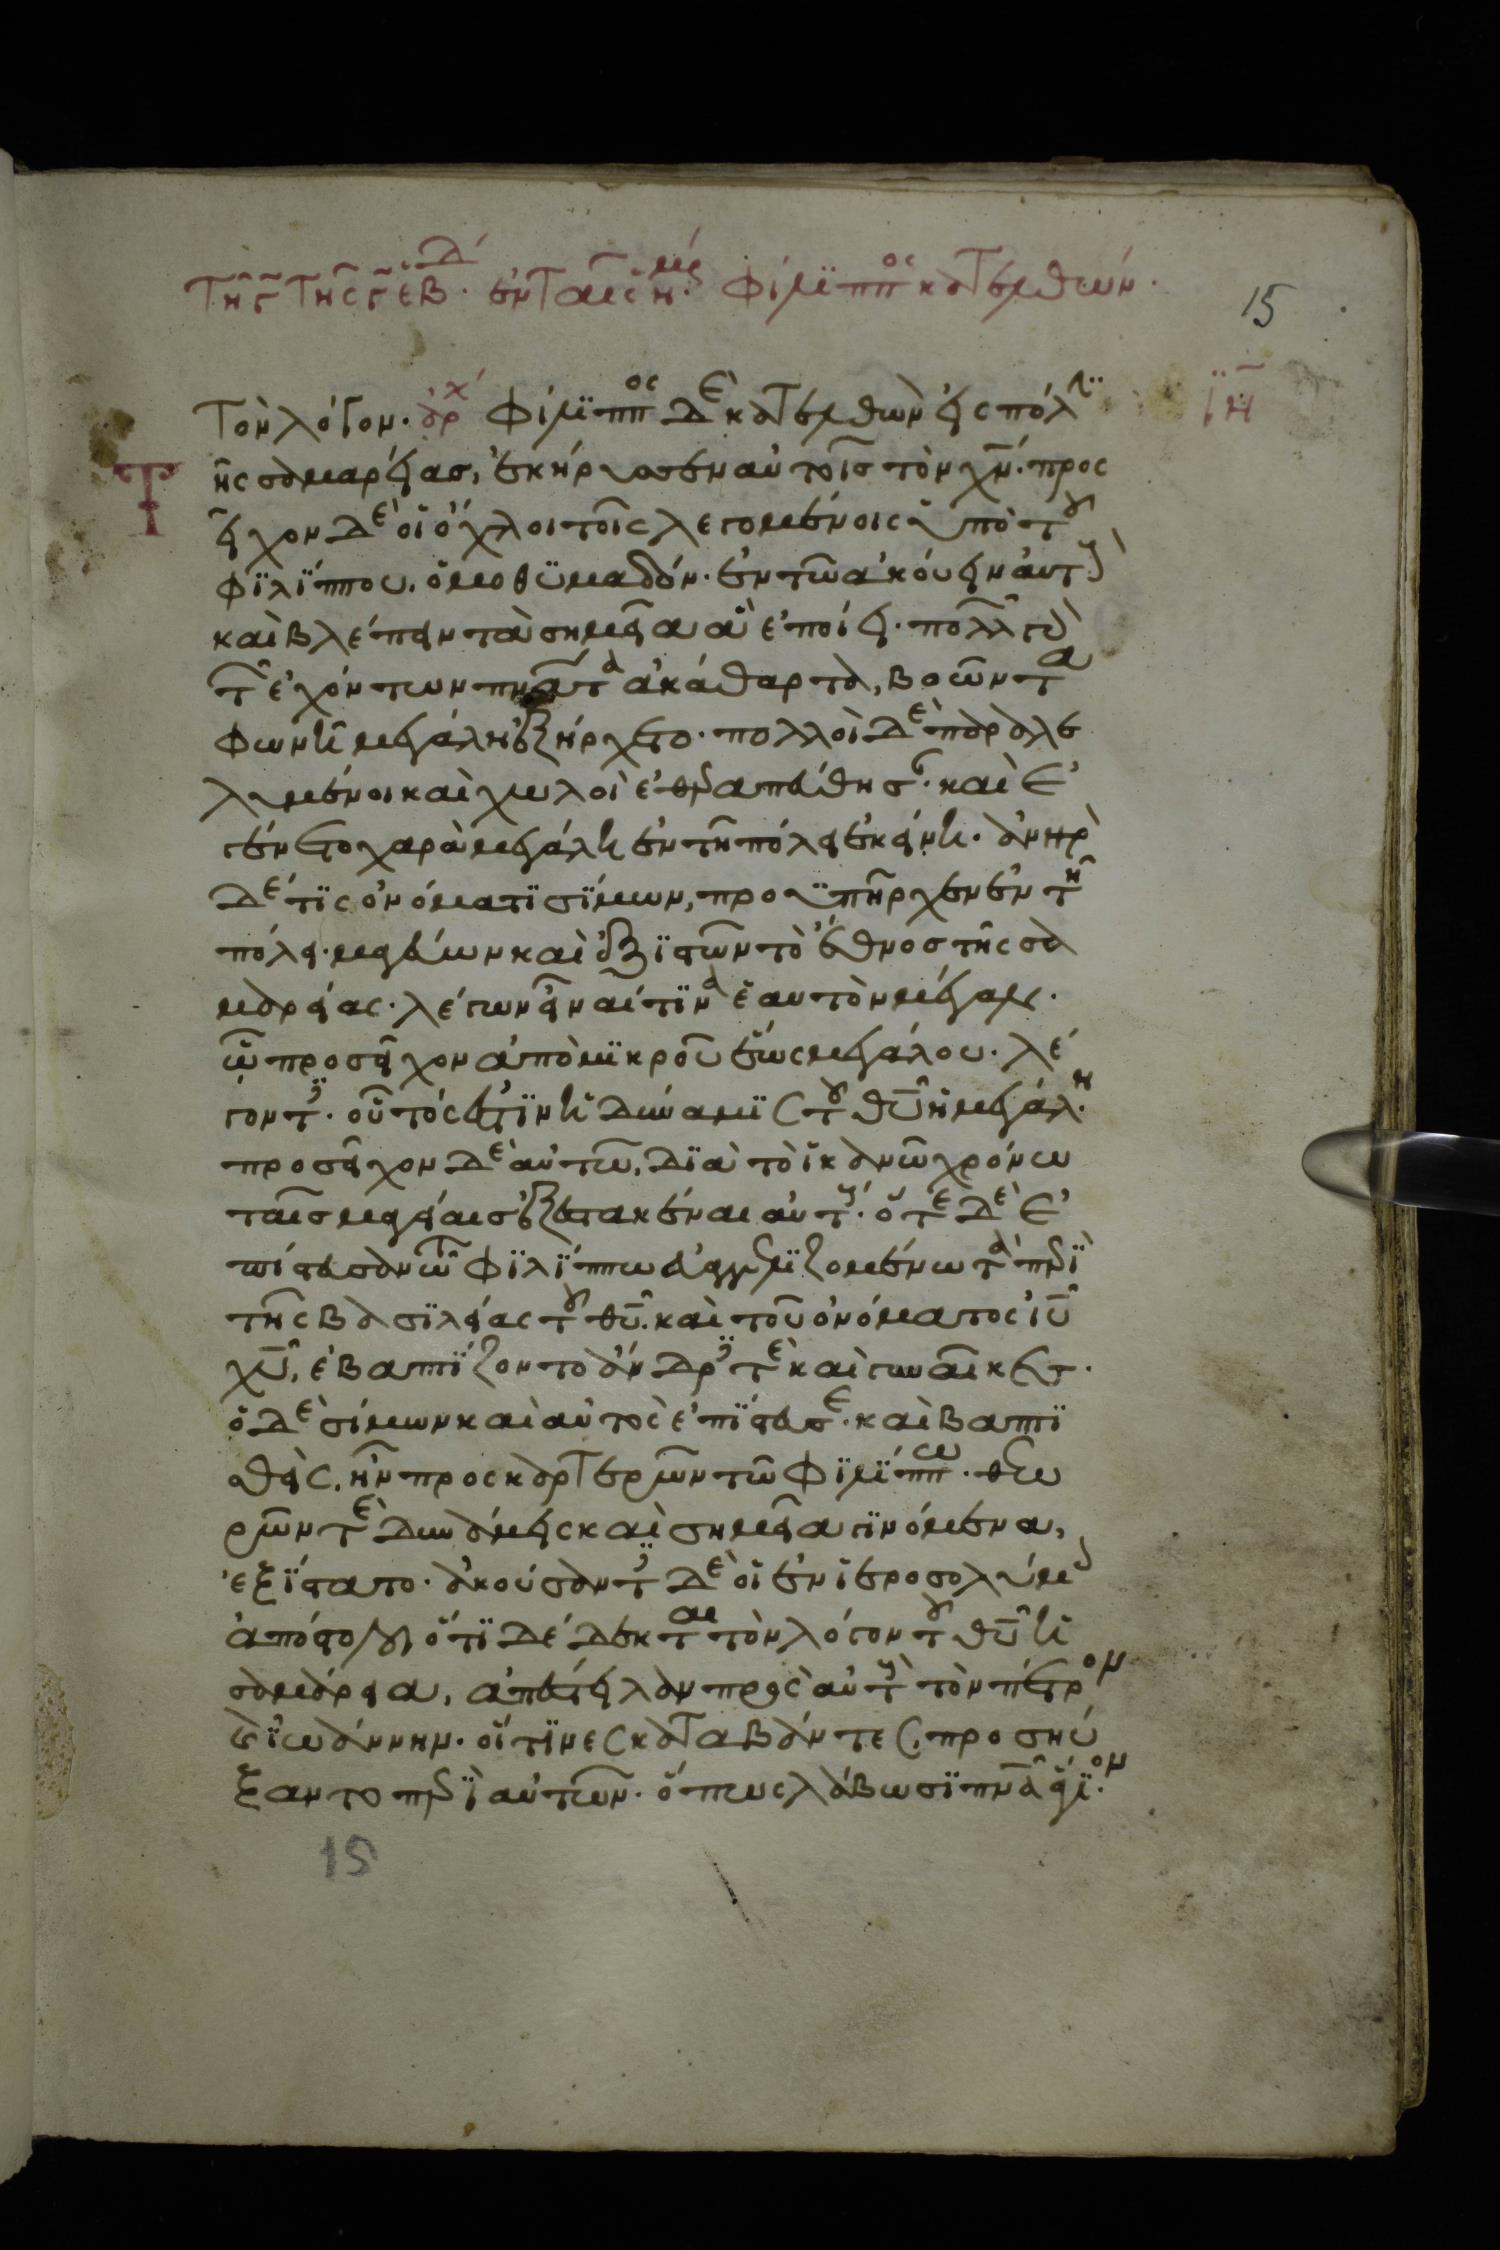 τῆ γ̅ τῆς γ̅ ἑβδ. ἐν ταῖς ἡμε. φίλϊππος κατελθὼν.
15
τὸν λόγον. ἀρχ φίλϊππος δὲ κατελθὼν εἰς πόλϊ
ϊη̅
τῆς σαμαρείας, ἐκήρυσσεν αὐτοῖς τὸν χν̅. προσ
εῖχον δὲ οἱ ὄχλοι τοῖς λεγομένοις ὑπὸ τοῦ
φϊλΐππου. ὁμοθϋμαδόν. ἐν τῶ ἀκούειν αὐτοὺς
καὶ βλέπειν τὰ σημεῖα ἃ ἐποίει. πολλῶν γὰρ
τῶν ἐχόντων πνα̅τα ἀκάθαρτα, βοῶντα
φωνῆ μεγάλη ἐξήρχετο. πολλοὶ δὲ παραλε
λυμένοι καὶ χωλοὶ ἐθεραπεύθησαν. καὶ ἐ
γένετο χαρὰ μεγάλη ἐν τῆ πόλει ἐκείνη. ἀνὴρ
δέ τϊς ὀνόματϊ σΐμων, προϋπῆρχεν ἐν τῆ
πόλει. μαγεύων καὶ ἐξϊστῶν τὸ ἔθνος τῆς σα
μαρείας. λέγων εἶναί τϊνα ἑαυτὸν μέγαν.
ὧ προσεῖχον ἀπὸ μϊκροῦ ἕως μεγάλου. λέ
γοντες. οὗτός ἐστϊν ἡ δύναμϊς τοῦ θυ̅ ἡ μεγάλη.
προσεῖχον δὲ αὐτῶ, δϊὰ τὸ ἱκανῶ χρόνω
ταῖς μαγείαις ἐξεστακέναι αὐτούς. ὅτε δὲ ἐ
πίστευσαν τῶ φϊλΐππω εὐαγγελϊζομένω τὰ περϊ
τῆς βασϊλείας τοῦ θυ̅. καὶ τοῦ ὀνόματος ἰυ̅
χυ̅, ἐβαπτϊζοντο ἄνδρες τὲ καὶ γυναῖκες.
ὁ δὲ σίμων καὶ αὐτὸς ἐπΐστευσε. καὶ βαπτϊ
σθεὶς, ἦν προσκαρτερῶν τῶ φϊλΐππω. θεω
ρῶν τὲ δυνάμεις καὶ σημεῖα γϊνόμενα,
ἐξΐστατο. ἀκούσαντες δὲ οἱ ἐν ἱεροσολύμοις
ἀπόστολοι, ὅτϊ δέδεκται τὸν λόγον τοῦ θυ̅ ἡ
σαμάρεια, ἀπέστειλαν πρὸς αὐτοὺς τὸν πέτρον
καὶ ϊωάννην. οἵτϊνες καταβάντες, προσηύ
ξαντο περϊ αὐτῶν. ὅπως λάβωσϊ πνα̅ ἅγϊον.
15